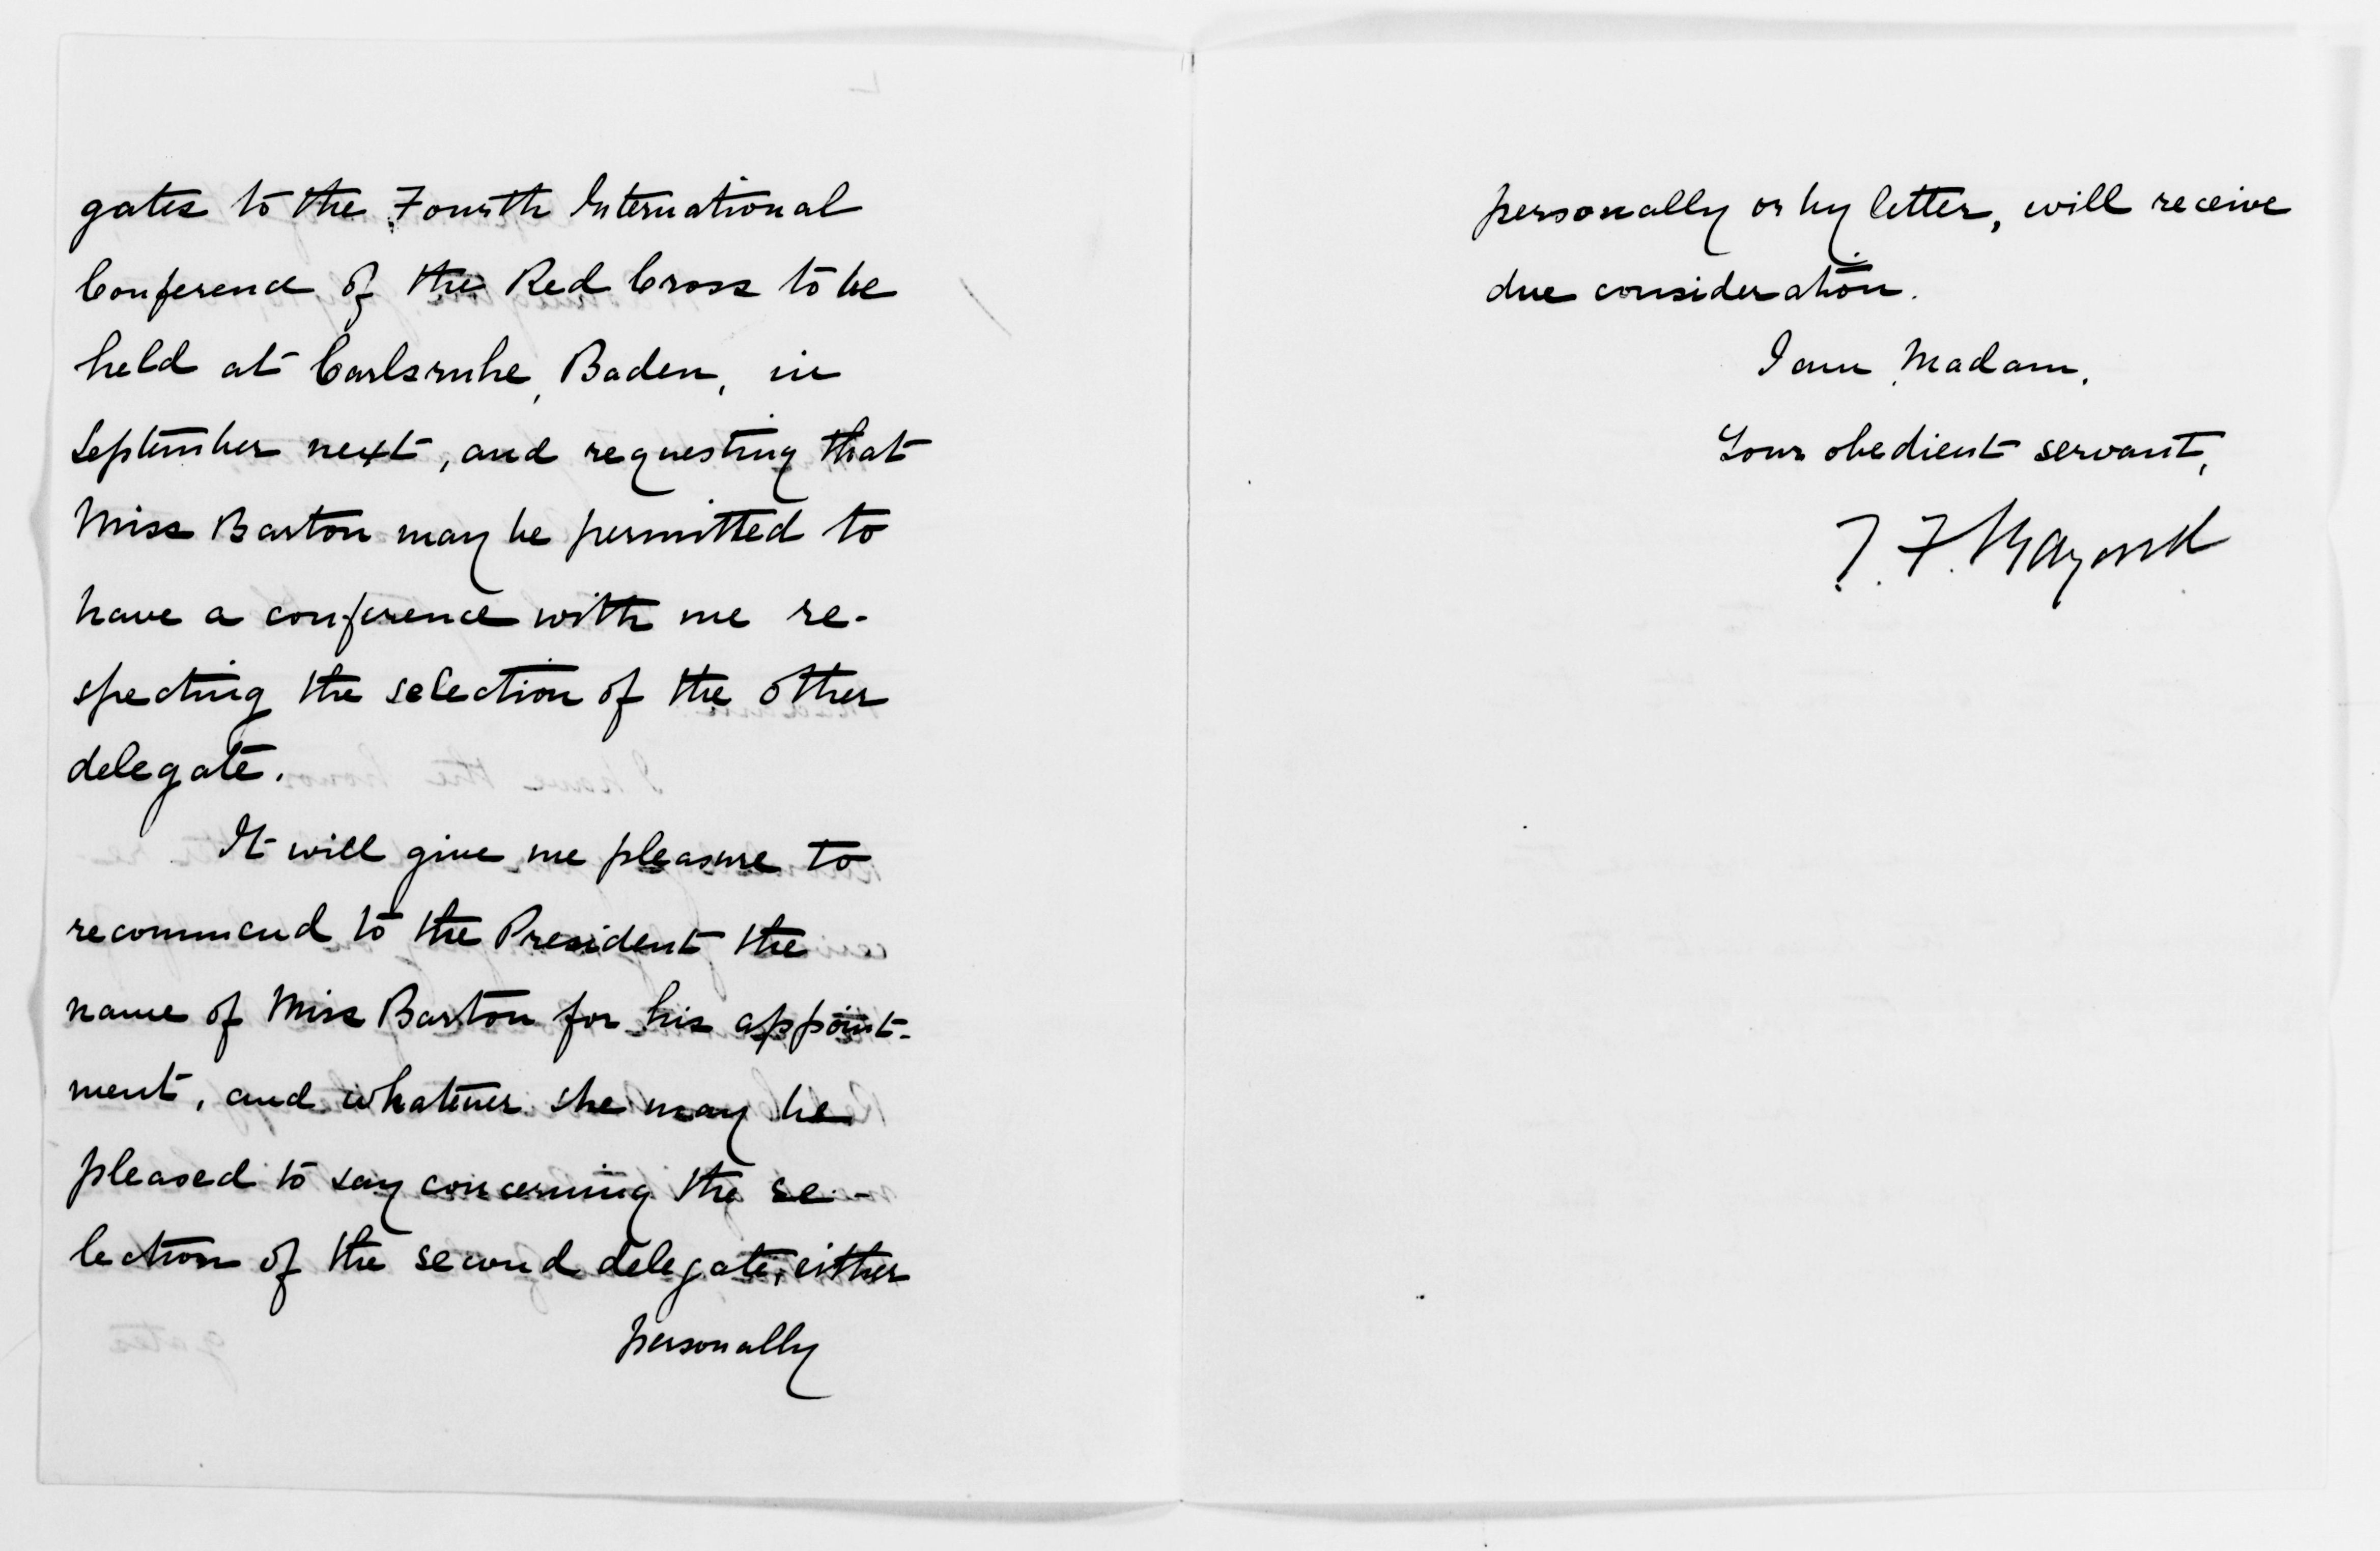 gates to the Fourth International
Conference of the Red Cross to be
held at Carlsruhe, Baden, in
September next, and requesting that
Miss Barton may be permitted to
have a conference with me re-
specting the selection of the other
delegate.
It will give me pleasure to
recommend to the President the
name of Miss Barton for his appoint-
ment, and whatever she may be
pleased to say concerning the se-
lection of the second delegate, either
personally
personally or by letter, will receive
due consideration.
I am, Madam,
Your obedient servant,
T. F. Bayard